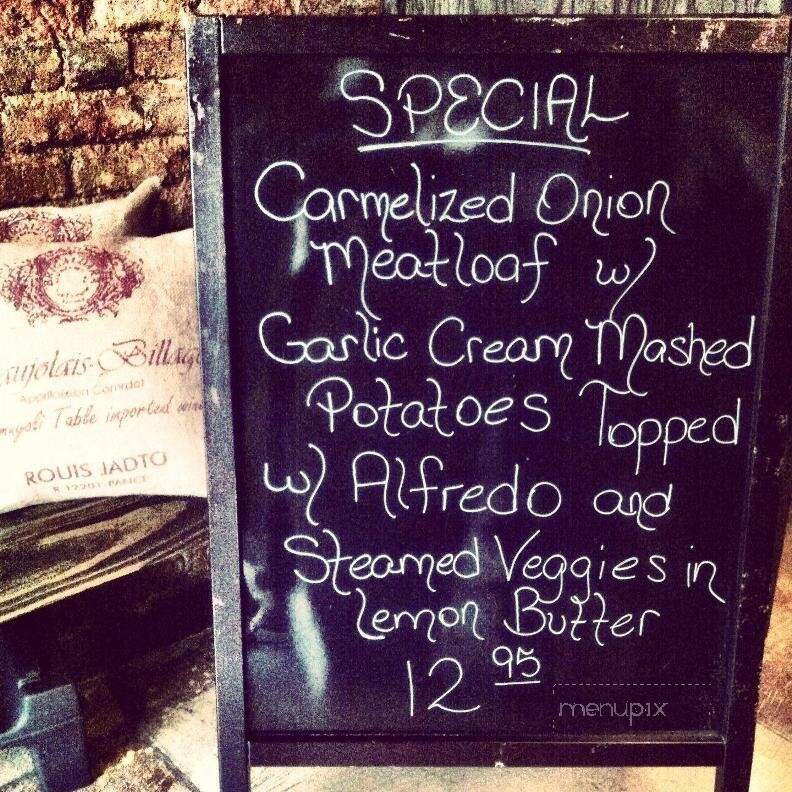 SPECIAL
Carmelized Onion
Meatloaf w/
Garlic Cream Mashed
Potatoes Topped
w/ Alfredo and
Steamed Veggies in
Lemon Butter
12 95
menupix
aujolais-Billag
Table imported
ROUIS JADTO